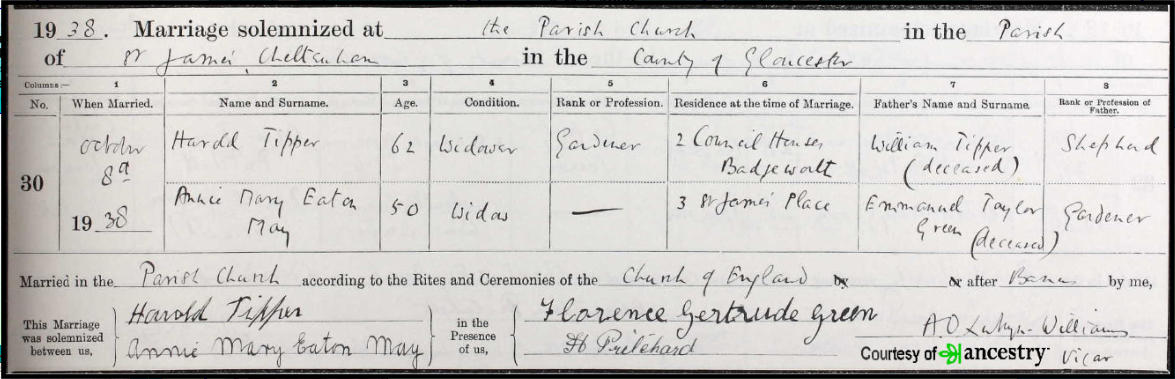 19 38. Marriage solemnized at the Parish Church in the Parish
of St James, Cheltenham in the County of Gloucester
Columns:— 1 2 3 4 5 6 7 8
No. When Married. Name and Surname. Age. Condition. Rank or Profession. Residence at the time of Marriage. Father's Name and Surname. Rank or Profession of Father.
30 October 8th 1938 Harold Tipper 62 Widower Gardener 2 Council Houses Badgeworth William Tipper (deceased) Shepherd
Annie Mary Eaton May 50 Widow — 3 St James' Place Emmanuel Taylor Green (deceased) Gardener
Married in the Parish Church according to the Rites and Ceremonies of the Church of England by or after Banns by me,
This Marriage was solemnized between us,
Harold Tipper
Annie Mary Eaton May
in the Presence of us,
Florence Gertrude Green
Pritchard
Williams
Vicar
Courtesy of ancestry